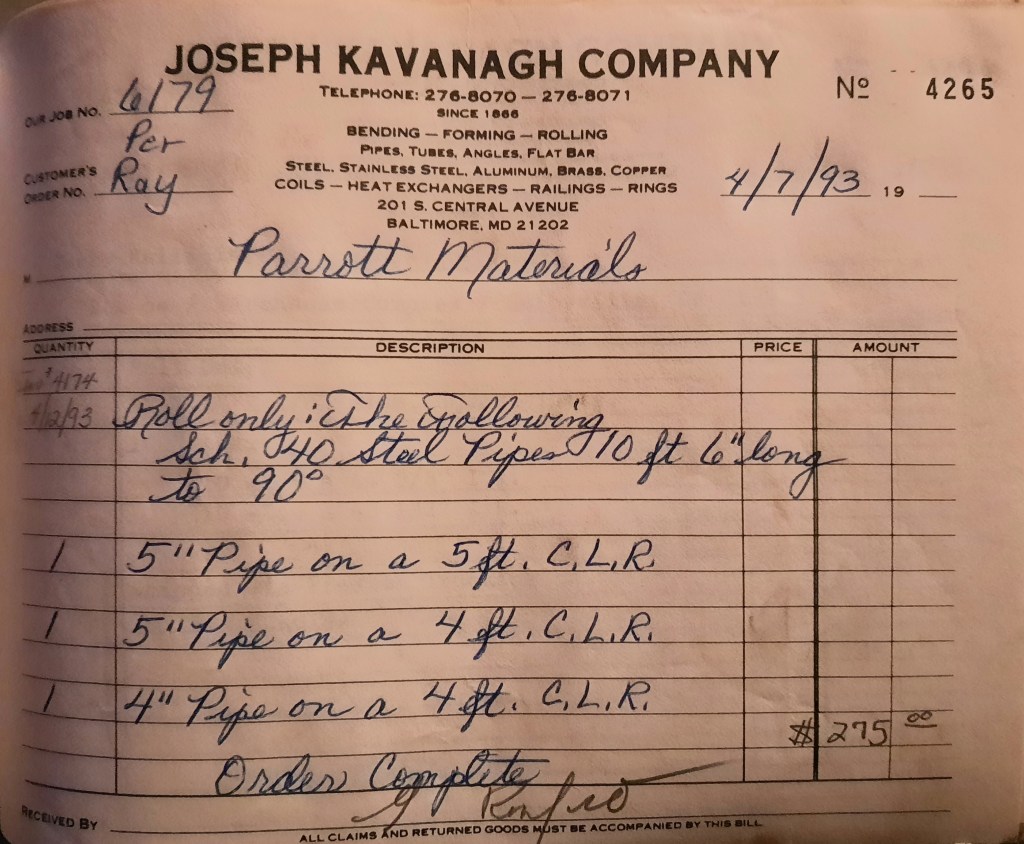 JOSEPH KAVANAGH COMPANY
TELEPHONE: 276-8070 — 276-8071
SINCE 1866
BENDING — FORMING — ROLLING
PIPES, TUBES, ANGLES, FLAT BAR
STEEL, STAINLESS STEEL, ALUMINUM, BRASS, COPPER
COILS — HEAT EXCHANGERS — RAILINGS — RINGS
201 S. CENTRAL AVENUE
BALTIMORE, MD 21202
Nº 4265
OUR JOB NO. 6179
Per
CUSTOMER'S
ORDER NO. Ray
4/7/93 19
M Parrott Materials
ADDRESS
QUANTITY DESCRIPTION PRICE AMOUNT
# 4174
4/12/93 Roll only: The Following
Sch. 40 Steel Pipes 10 ft 6" long
to 90°
1 5" Pipe on a 5 ft. C.L.R.
1 5" Pipe on a 4 ft. C.L.R.
1 4" Pipe on a 4 ft. C.L.R.
$ 275 00
Order Complete
RECEIVED BY
ALL CLAIMS AND RETURNED GOODS MUST BE ACCOMPANIED BY THIS BILL